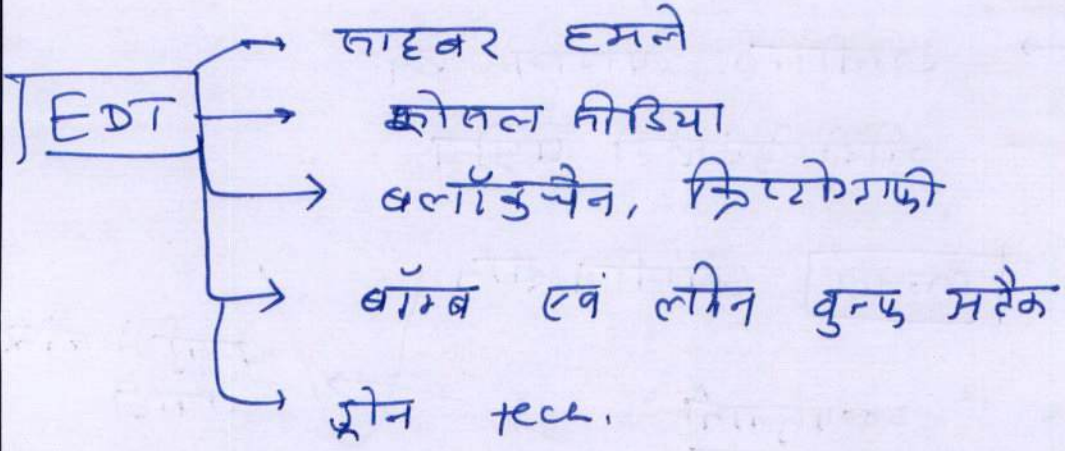 साइबर हमले
EDT
सोसल मीडिया
ब्लॉकचैन, क्रिप्टोग्राफी
बॉम्ब एवं लोन वुल्फ अटैक
ड्रोन tech.